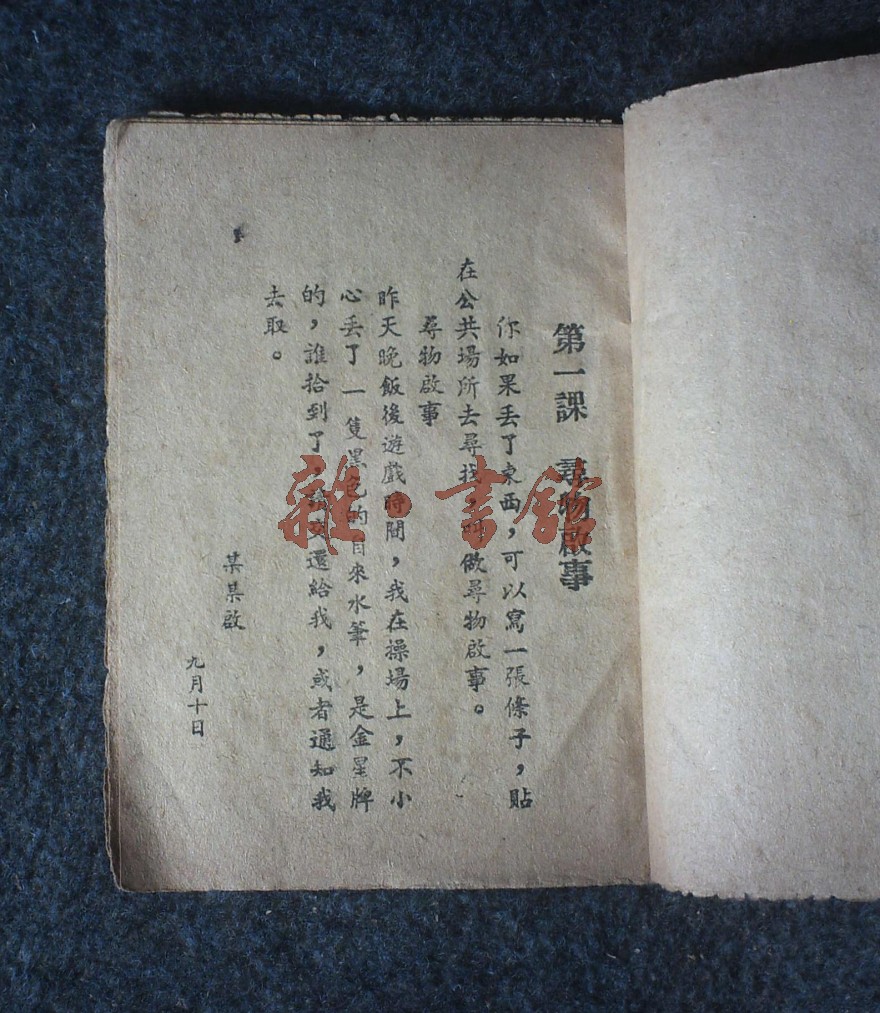 第一課　尋物啟事
你如果丟了東西，可以寫一張條子，貼
在公共場所去尋找，叫做尋物啟事。
尋物啟事
昨天晚飯後遊戲時間，我在操場上，不小
心丟了一隻黑色的自來水筆，是金星牌
的，誰拾到了，請交還給我，或者通知我
去取。
某某啟
九月十日
雜·書館